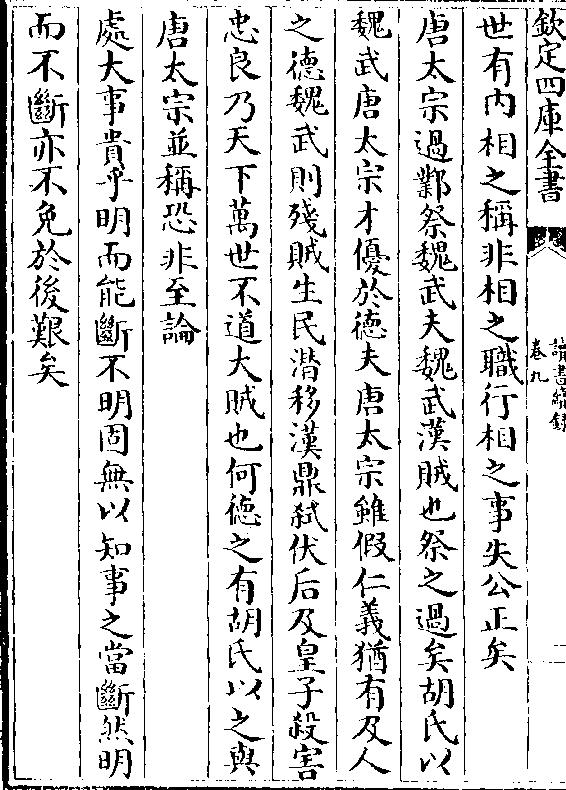 欽定四庫全書
讀書續錄
卷九
二
世有内相之稱非相之職行相之事失公正矣
唐太宗過鄴祭魏武夫魏武漢賊也祭之過矣胡氏以
魏武唐太宗才優於德夫唐太宗雖假仁義猶有及人
之德魏武則殘賊生民潛移漢鼎弑伏后及皇子殺害
忠良乃天下萬世不道大賊也何德之有胡氏以之與
唐太宗並稱恐非至論
處大事貴乎明而能斷不明固無以知事之當斷然明
而不斷亦不免於後艱矣